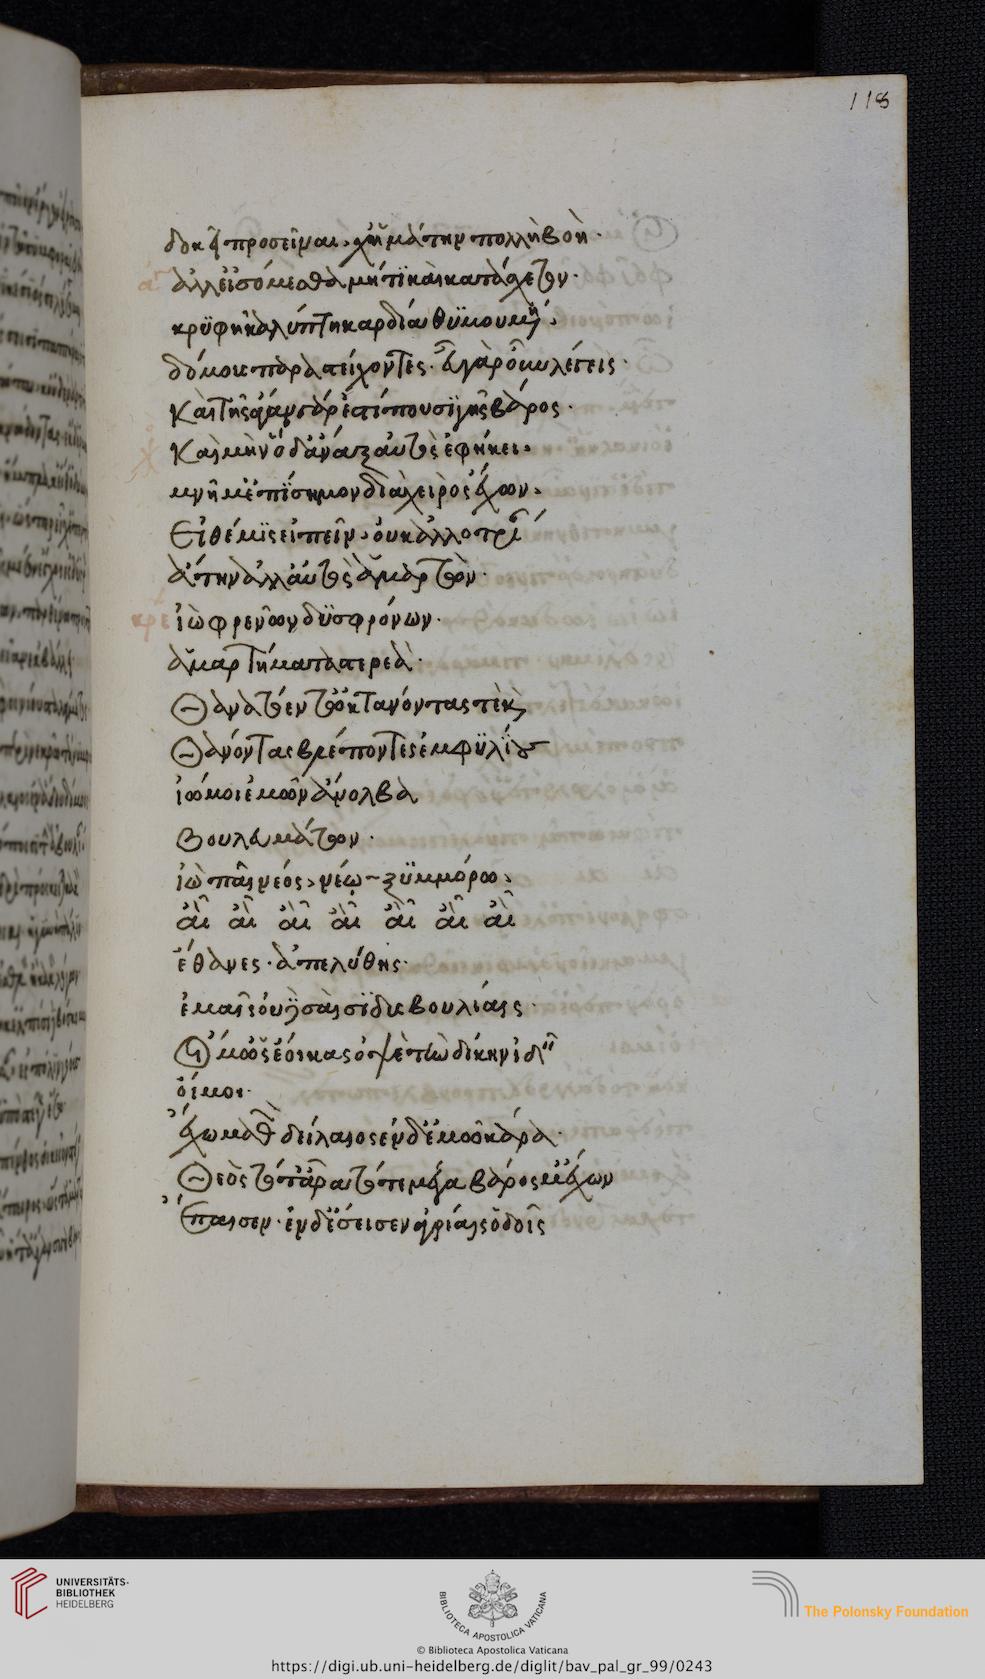 118
δοκεῖ προσεῖναι. χἠ μάτην πολλὴ βοή.
ἀλλ' εἰσόμεσθα μή τι καὶ κατάσχετον.
κρυφῇ καλύπτει καρδίᾳ θυμουμένῃ.
δόμους παραστείχοντες. εὖ γὰρ οὖν λέγεις.
καὶ τῆς ἄγαν γάρ ἐστί που σιγῆς βάρος.
Καὶ μὴν ὅδ' ἄναξ αὐτὸς ἐφήκει.
μνῆμ' ἐπίσημον διὰ χειρὸς ἔχων.
Εἰ θέμις εἰπεῖν. οὐκ ἀλλοτρίαν
ἄτην ἀλλ' αὐτὸς ἁμαρτών.
κρε ἰὼ φρενῶν δυσφρόνων.
ἁμαρτήματα στερεὰ.
Θανατόεντ' ὦ κτανόντας τε καὶ
Θανόντας βλέποντες ἐμφυλίους
ἰώ μοι ἐμῶν ἄνολβα
Βουλευμάτων.
ἰὼ παῖ νέος. νέῳ ξὺν μόρω.
αἲ αἲ αἲ αἲ αἲ αἲ αἲ
ἔθανες. ἀπελύθης.
ἐμαῖς οὐδὲ σαῖσι δυσβουλίαις.
Οἴμ' ὡς ἔοικας ὀψὲ τὴν δίκην ἰδεῖν
οἴμοι.
ἔχω μαθὼν δείλαιος ἐν δ' ἐμῶ κάρα.
Θεὸς τότ' ἄρα τότε μέγα βάρος μ' ἔχων
ἔπαισεν. ἐν δ' ἔσεισεν ἀγρίαις ὁδοῖς
UNIVERSITÄTS-
BIBLIOTHEK
HEIDELBERG
BIBLIOTECA APOSTOLICA VATICANA
The Polonsky Foundation
© Biblioteca Apostolica Vaticana
https://digi.ub.uni-heidelberg.de/diglit/bav_pal_gr_99/0243